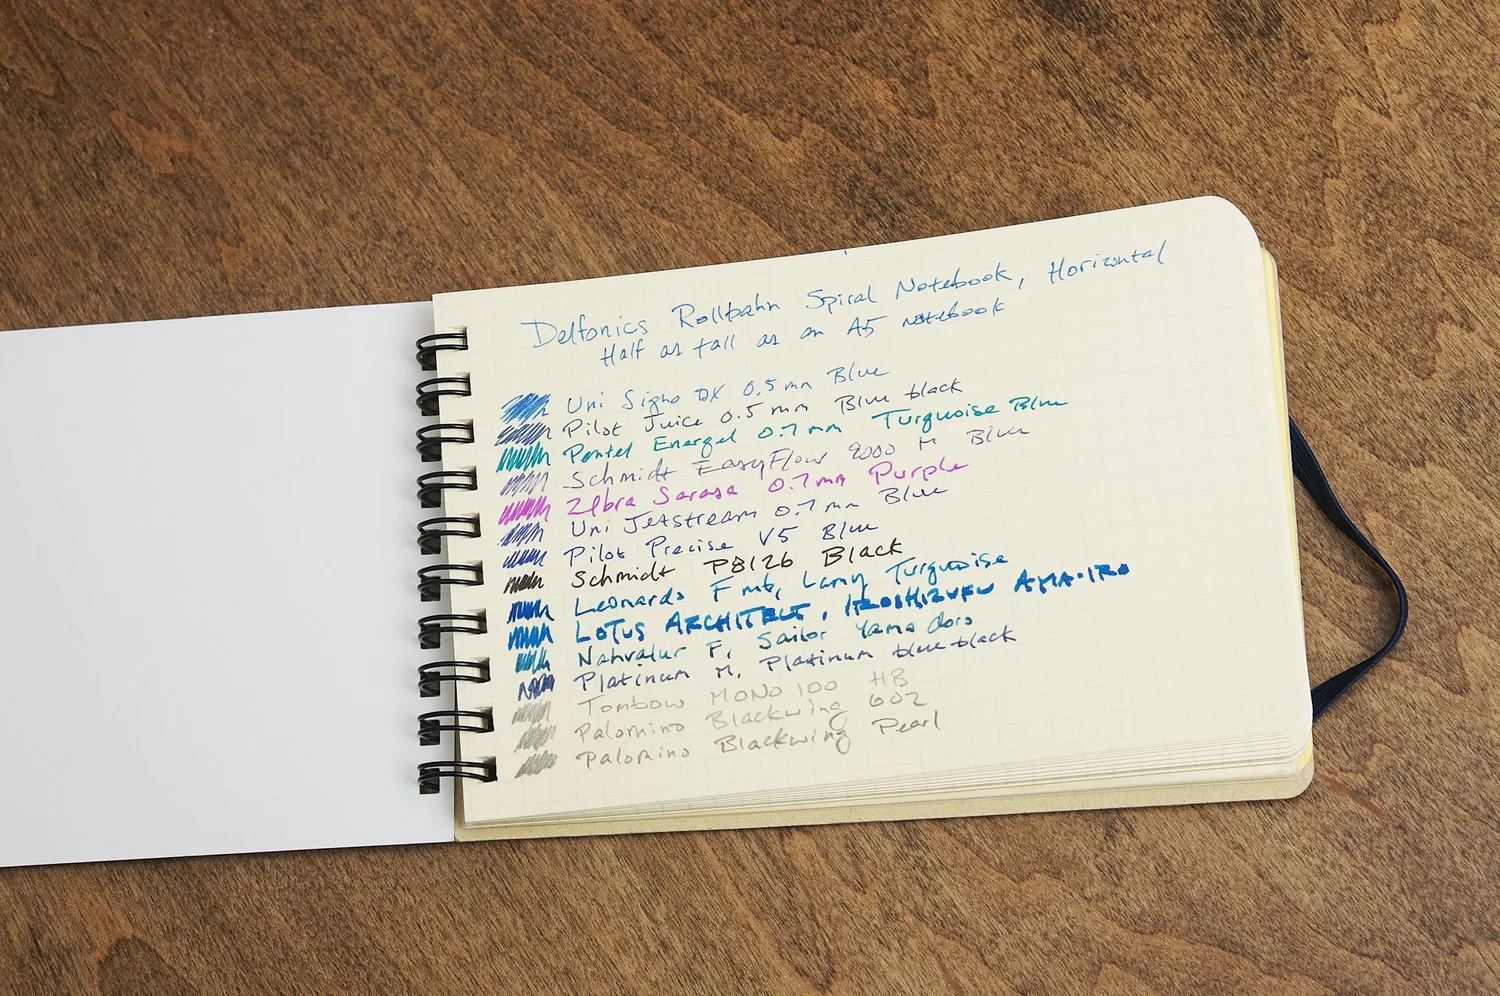 Delfonics Rollbahn Spiral Notebook, Horizontal
Half as tall as an A5 notebook
Uni Signo DX 0.5mm Blue
Pilot Juice 0.5mm Blue black
Pentel Energel 0.7mm Turquoise Blue
Schmidt EasyFlow 9000 M Blue
Zebra Sarasa 0.7mm Purple
Uni Jetstream 0.7mm Blue
Pilot Precise V5 Blue
Schmidt P8126 Black
Leonardo F nib, Lamy Turquoise
LOTUS ARCHITECT, IROSHIZUKU AMA-IRO
Nahvalur F, Sailor Yama dori
Platinum M, Platinum blue-black
Tombow MONO 100 HB
Palomino Blackwing 602
Palomino Blackwing Pearl